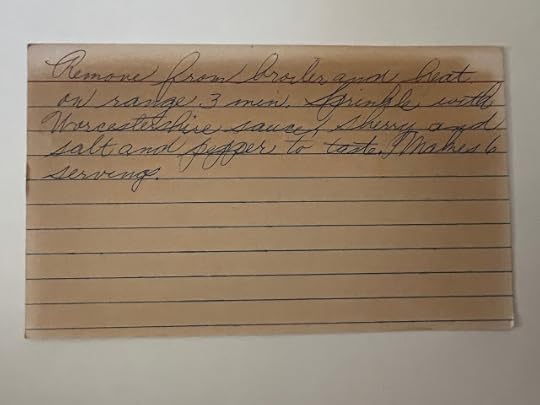 Remove from broiler and heat
on range 3 min. Sprinkle with
Worcestershire sauce, sherry and
salt and pepper to taste. Makes 6
servings.